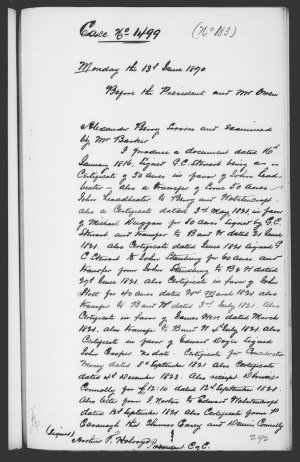 Case No 1499 (No 183)
Monday the 13th June 1870
Before the President and Mr Owen
Alexander Berry sworn and examined
by Mr Barker
I produce a document dated 16th
January 1816. Signed G.C. Steward being a
Certificate of 50 acres in favor of John Lead-
beater - also a transfer of same 50 acres
John Leadbeater to Berry and Wolstonecraft
also a Certificate dated 3rd May 1821 in favor
of Michael Duggan for 50 acres signed by G.C.
Steward and transfer to B and W dated 2 June
1821. Also Certificate dated June 1821 signed G
C Steward to John Stanbury for 60 acres and
transfer from John Stanbury to B & W dated
29th June 1821. Also Certificate in favor of John
for 40 acres date 31st March 1821 also
transfer to B and W dated 3rd July 1821. Also
Certificate in favor of James dated March
1821. also transfer to B and W 4th July 1821. Also
Certificate in favor of Edward Doyle signed
John Cooper No date. Certificate for Consideration
Money dated 3rd September 1821 Also Certificate
dated 4th December 1821. Also receipt Dennis
Connolly for £12.10 dated 12th September 1821.
Also letter from J. Norton to Edward Wolstonecraft
dated 12th September 1821 Also Certificate from P
Cavanagh the Thomas Carey and Dennis Connolly
(Signed)
Arthur T. Holroyd
President C of C.
292